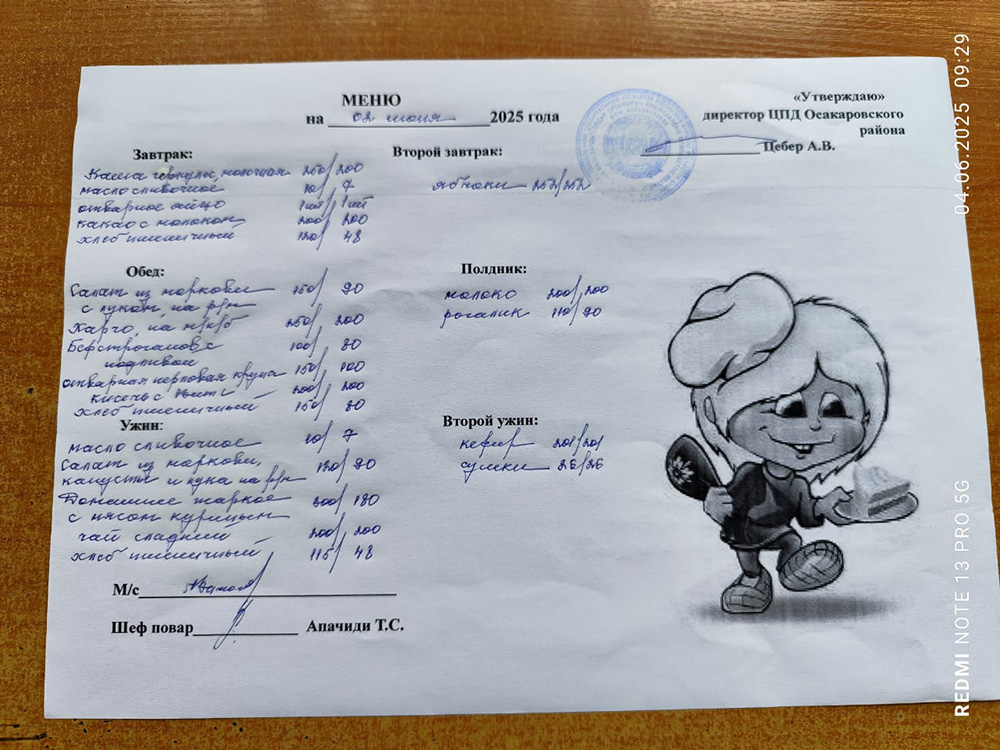 МЕНЮ
на 02 июня 2025 года
«Утверждаю»
директор ЦПД Осакаровского
района
Цебер А.В.
Завтрак:
Каша геркулес, молочная 250/200
масло сливочное 10/7
отварное яйцо 1шт/1шт
какао с молоком 200/200
хлеб пшеничный 120/48
Второй завтрак:
яблоки 252/252
Обед:
Салат из моркови 150/90
с луком, на р/м
Харчо, на м/к/б 250/200
Бефстроганов с 100/80
подливой
отварная перловая крупа 150/100
кисель с 200/200
хлеб пшеничный 150/80
Полдник:
молоко 200/200
рогалик 110/90
Ужин:
масло сливочное 10/7
Салат из моркови,
капусты и лука на р/м 120/90
Домашнее жаркое 300/180
с мясом курицы
чай сладкий 200/200
хлеб пшеничный 115/48
Второй ужин:
кефир 201/201
сушки 26/26
М/с
Шеф повар Апачиди Т.С.
REDMI NOTE 13 PRO 5G 04.06.2025 09:29